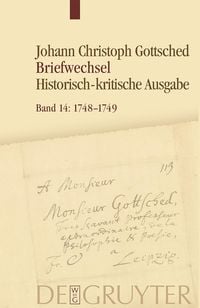 Johann Christoph Gottsched
Briefwechsel
Historisch-kritische Ausgabe
Band 14: 1748–1749
113
A Monsieur
Monsieur Gottsched,
Professeur
extraordinaire de la
Philosophie & Poesie,
à
Leipzig.
DE GRUYTER